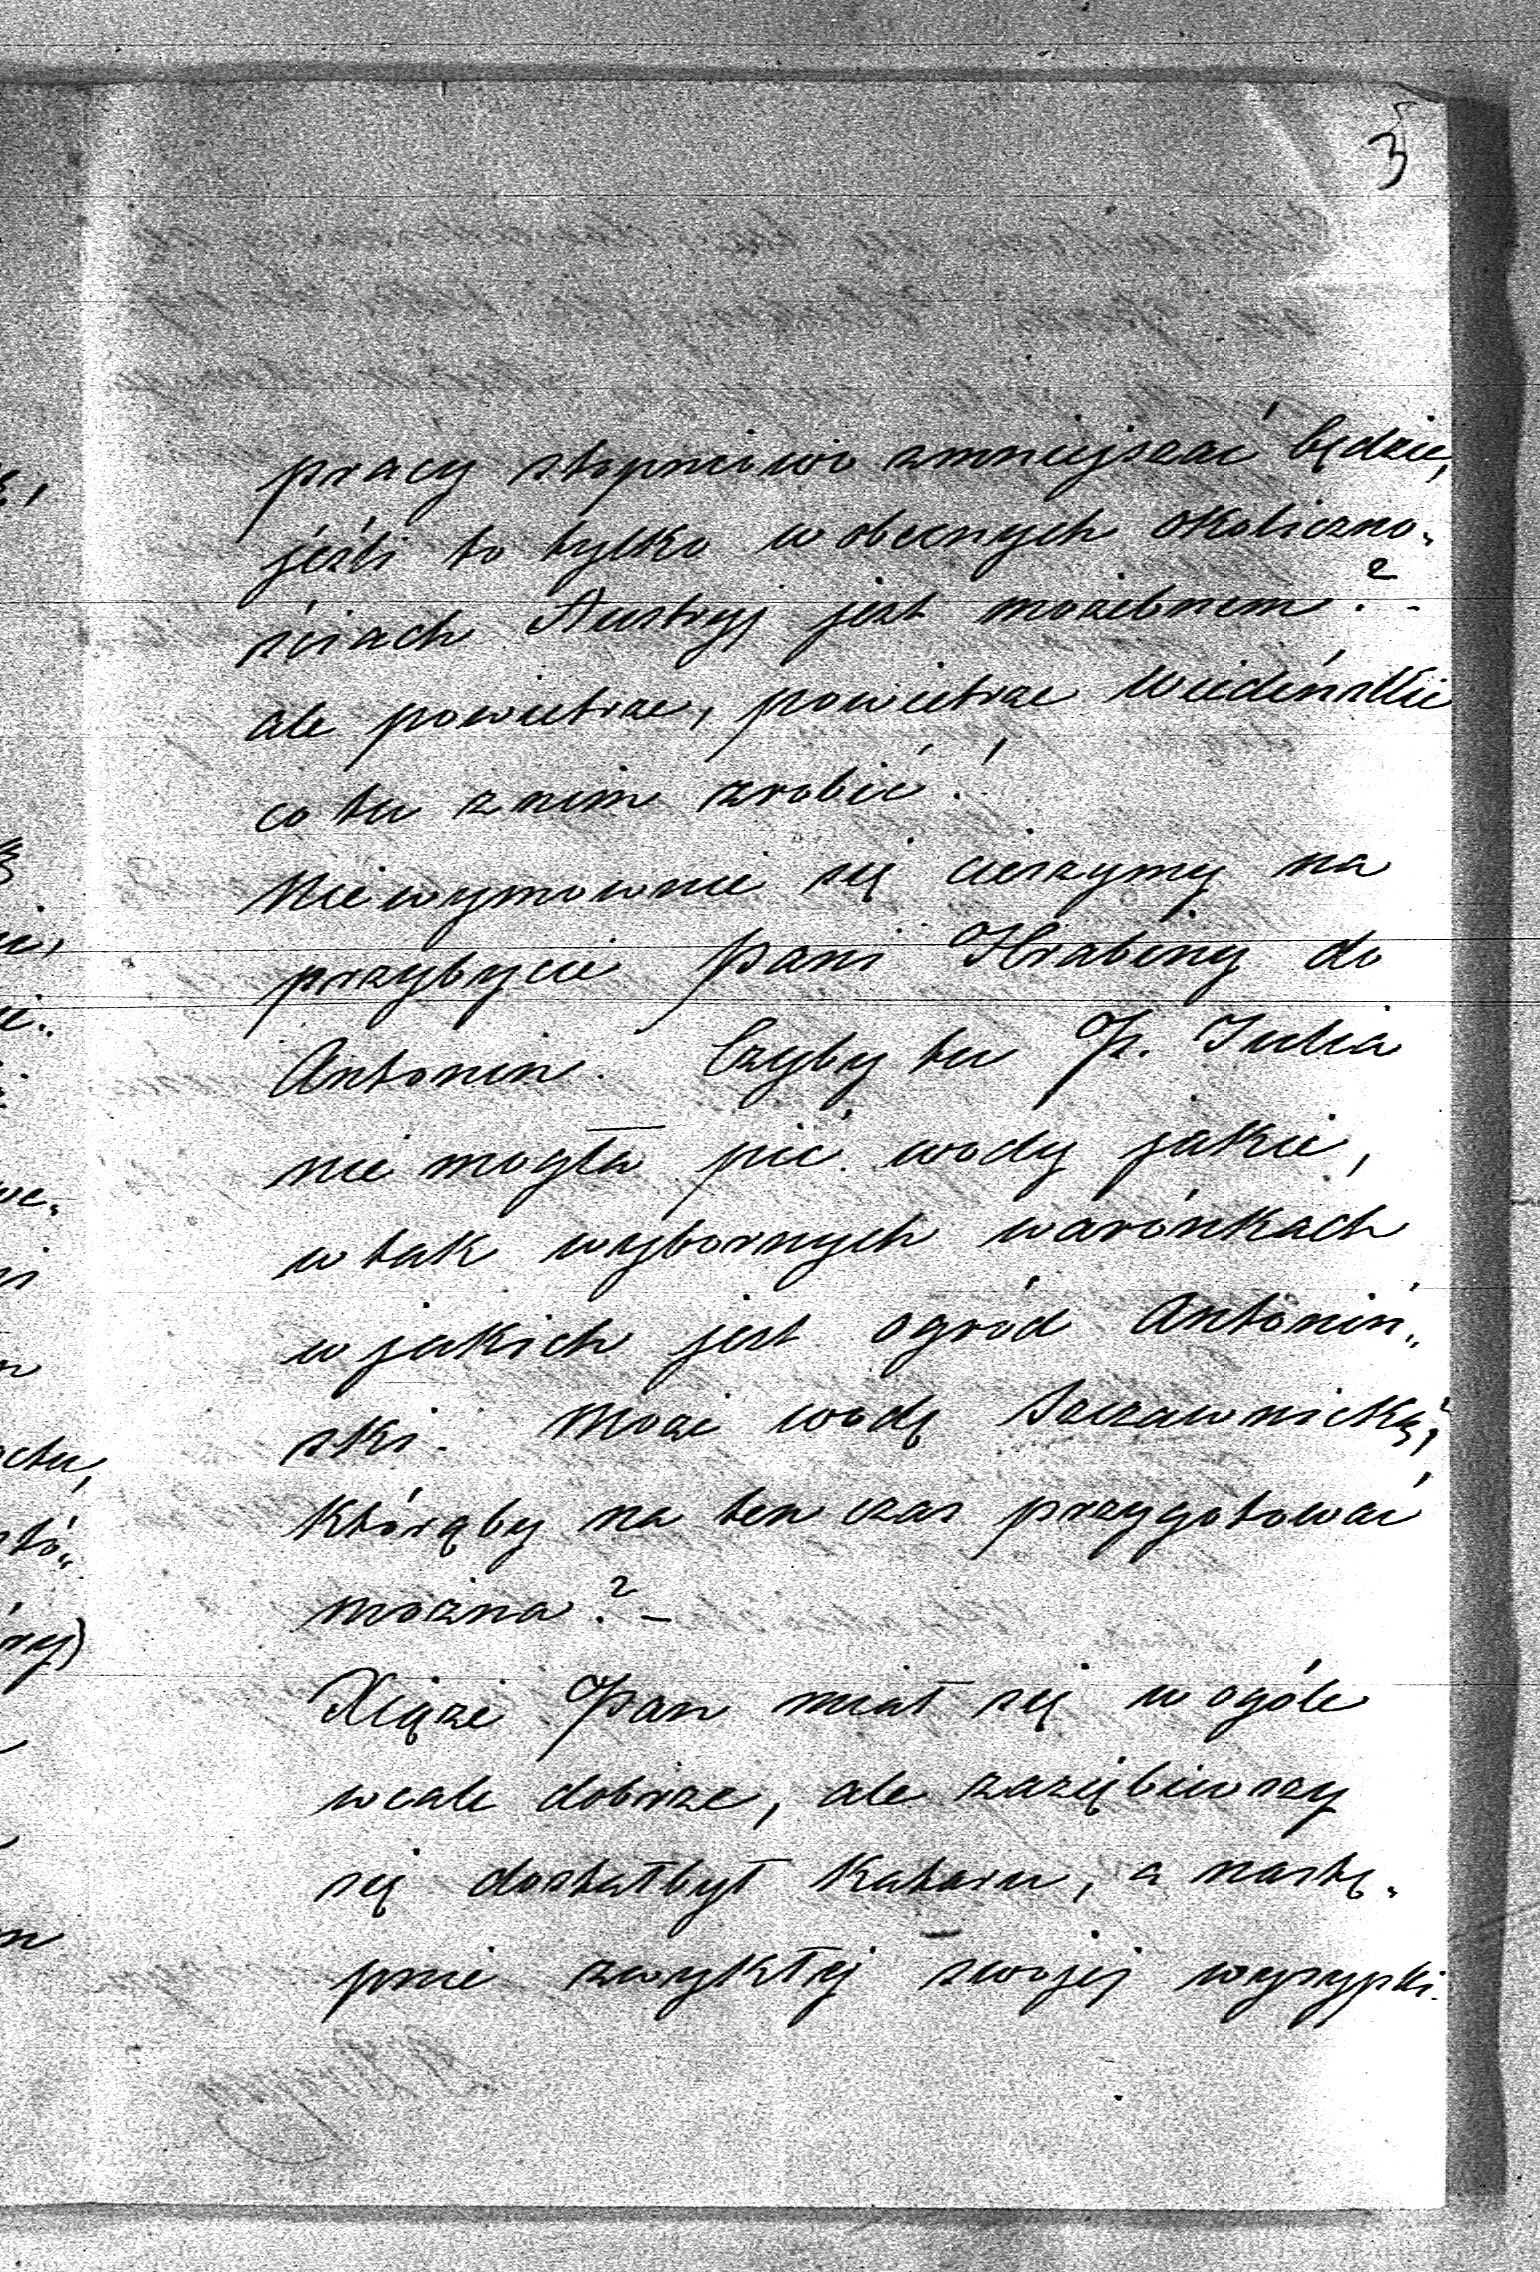 3
pracy stopniowo zmniejszać będzie,
jeźli to tylko w obecnych okoliczno„
ściach Austryj jest możebnem? -
ale powietrze, powietrze Wiedeńskie
co tu z nim zrobić!
Niewymownie się cieszymy na
przybycie Pani Hrabiny do
Antonin. Czyby tu P. Julia
nie mogła pić wody jakie,
w tak wybornych warónkach
w jakich jest ogród Antoniń„
ski. Może wodę Szczawnicką,
którąby na ten czas przygotować
można? -
Xiąże Pan miał się w ogóle
wcale dobrze, ale zaziębiwszy
się dostał był Kataru, a nastę„
pnie zwykłej swojej wysypki.